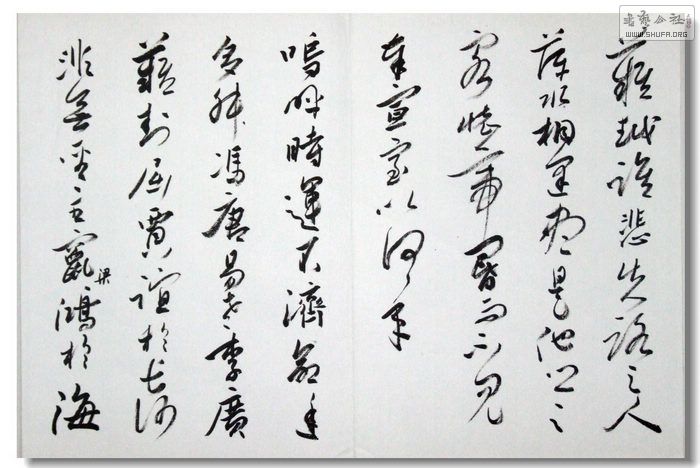 難越誰悲失路之人
萍水相逢盡是他鄉之
客懷帝閽而不見
奉宣室以何年
嗚呼時運不濟命途
多舛馮唐易老李廣
難封屈賈誼於長沙
非無聖主竄梁鴻於海
書藝公社
WWW.SHUFA.ORG